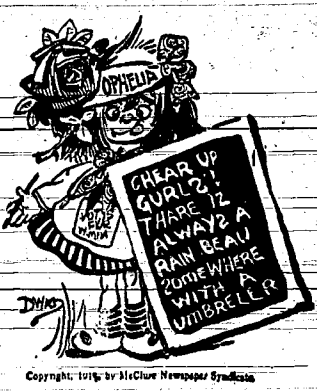 OPHELIA
VOTES
FOR
WIMIN
CHEAR UP
GURLS'!
THARE IZ
ALWAYS A
RAIN BEAU
SOMEWHERE
WITH A
UMBRELLR
Copyright, 1915, by McClure Newspaper Syndicate